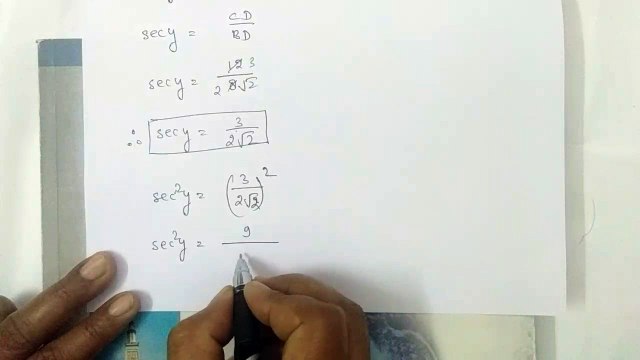 sec y = CD/BD
sec y = 12 3/2 8√2
∴ sec y = 3/2√2
sec²y = (3/2√2)²
sec²y = 9/